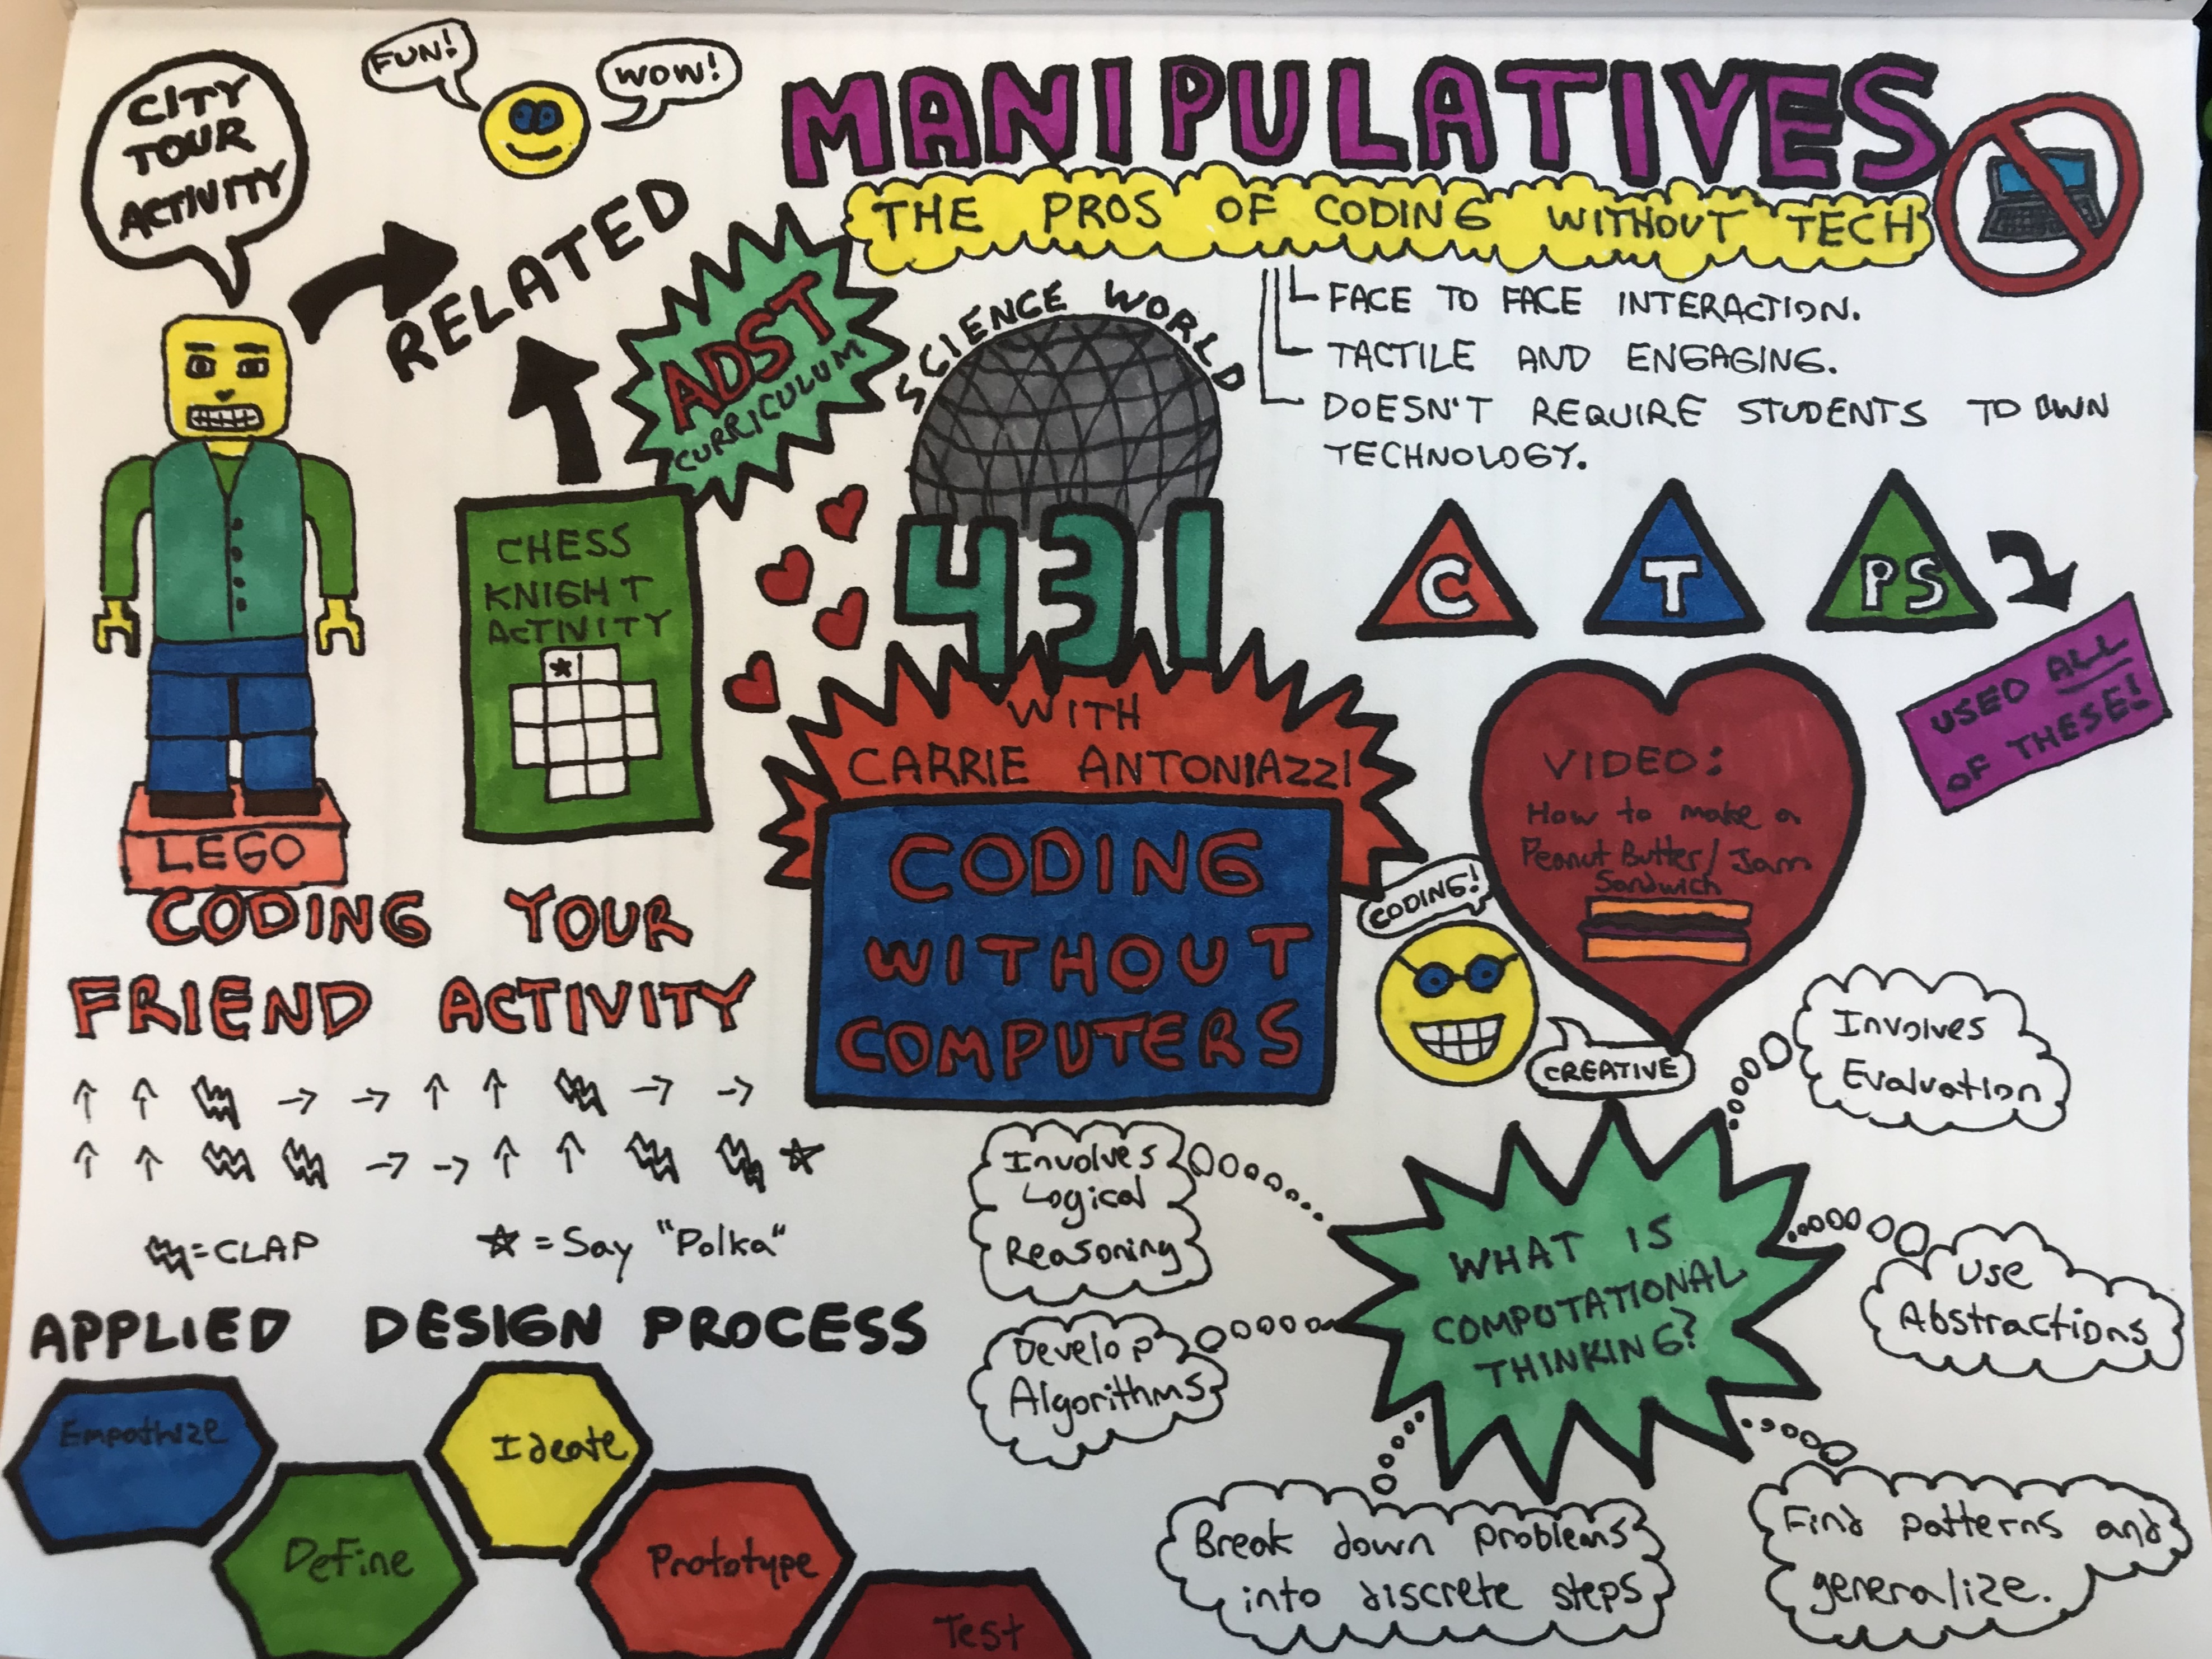 CITY
TOUR
ACTIVITY
FUN!
WOW!
MANIPULATIVES
THE PROS OF CODING WITHOUT TECH
FACE TO FACE INTERACTION.
TACTILE AND ENGAGING.
DOESN'T REQUIRE STUDENTS TO OWN
TECHNOLOGY.
RELATED
ADST
CURRICULUM
SCIENCE WORLD
431
WITH
CARRIE ANTONIAZZI
CODING
WITHOUT
COMPUTERS
CHESS
KNIGHT
ACTIVITY
*
LEGO
C
T
PS
USED ALL
OF THESE!
VIDEO:
How to make a
Peanut Butter/Jam
Sandwich
CODING!
CREATIVE
CODING YOUR
FRIEND ACTIVITY
↑ ↑ → → ↑ ↑ → →
↑ ↑ → → ↑ ↑ ☆
=CLAP
☆ = Say "Polka"
APPLIED DESIGN PROCESS
Empathize
Define
Ideate
Prototype
Test
WHAT IS
COMPUTATIONAL
THINKING?
Involves
Logical
Reasoning
Develop
Algorithms
Break down problems
into discrete steps
Find patterns and
generalize.
Use
Abstractions
Involves
Evaluation